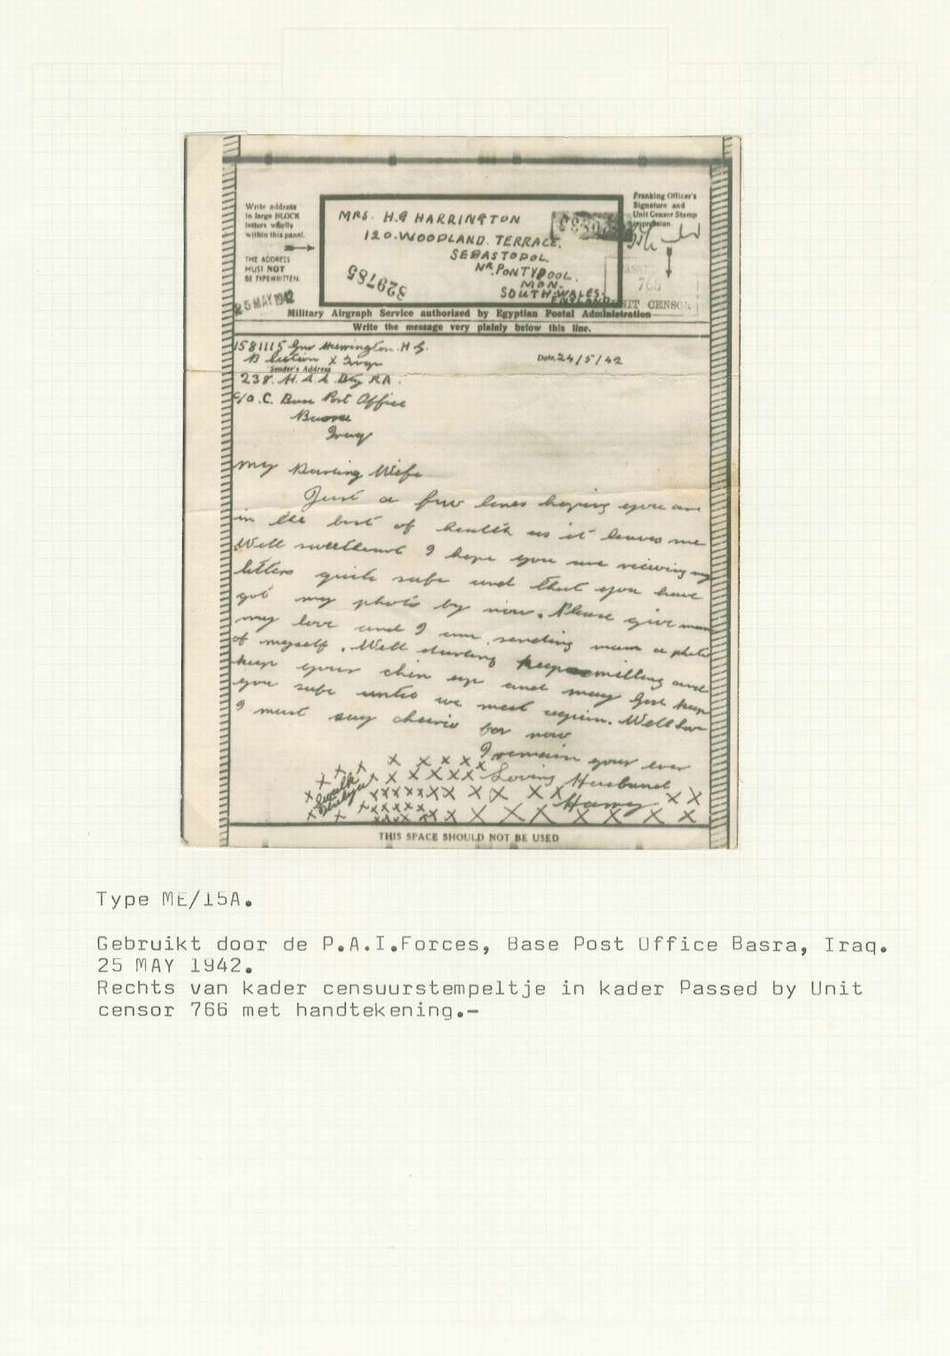 Write address
in large BLOCK
letters wholly
within this panel.
THE ADDRESS
MUST NOT
BE TYPEWRITTEN.
25 MAY 1942
MRS. H.G HARRINGTON
120. WOODLAND. TERRACE.
SEBASTOPOL.
NR. PONTYPOOL.
MON.
SOUTH-WALES.
ENGLAND
329785
Franking Officer's
Signature and
Unit Censor Stamp
766
UNIT CENSOR
Military Airgraph Service authorized by Egyptian Postal Administration
Write the message very plainly below this line.
1581115 Gnr Harrington. H.G.
B Section X Troop
Sender's Address
Date. 24/5/42
238. H.A.A. Bty RA.
c/o O.C. Base Post Office
Basra
Iraq
My Darling Wife
Just a few lines hoping you are
in the best of health as it leaves me
Well sweetheart I hope you are reciving my
letters quite safe and that you have
got my photo by now. Please give mam
my love and I am sending mam a photo
of myself. Well darling keep smiling and
keep your chin up and may God keep
you safe until we meet again. Well love
I must say cheerio for now
I remain your ever
Loving Husband
Harry
THIS SPACE SHOULD NOT BE USED
Type ME/15A.
Gebruikt door de P.A.I.Forces, Base Post Office Basra, Iraq.
25 MAY 1942.
Rechts van kader censuurstempeltje in kader Passed by Unit
censor 766 met handtekening.-